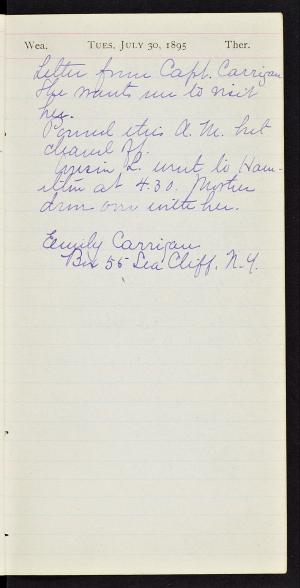 Wea. TUES, JULY 30, 1895 Ther.
Letter from Capt. Carrigan
She wants me to visit
her.
Poured this A.M. but
cleared off.
Cousin L. went to Ham-
ilton at 4.30. Mother
drove over with her.
Emily Carrigan
Box 55 Sea Cliff, N.Y.